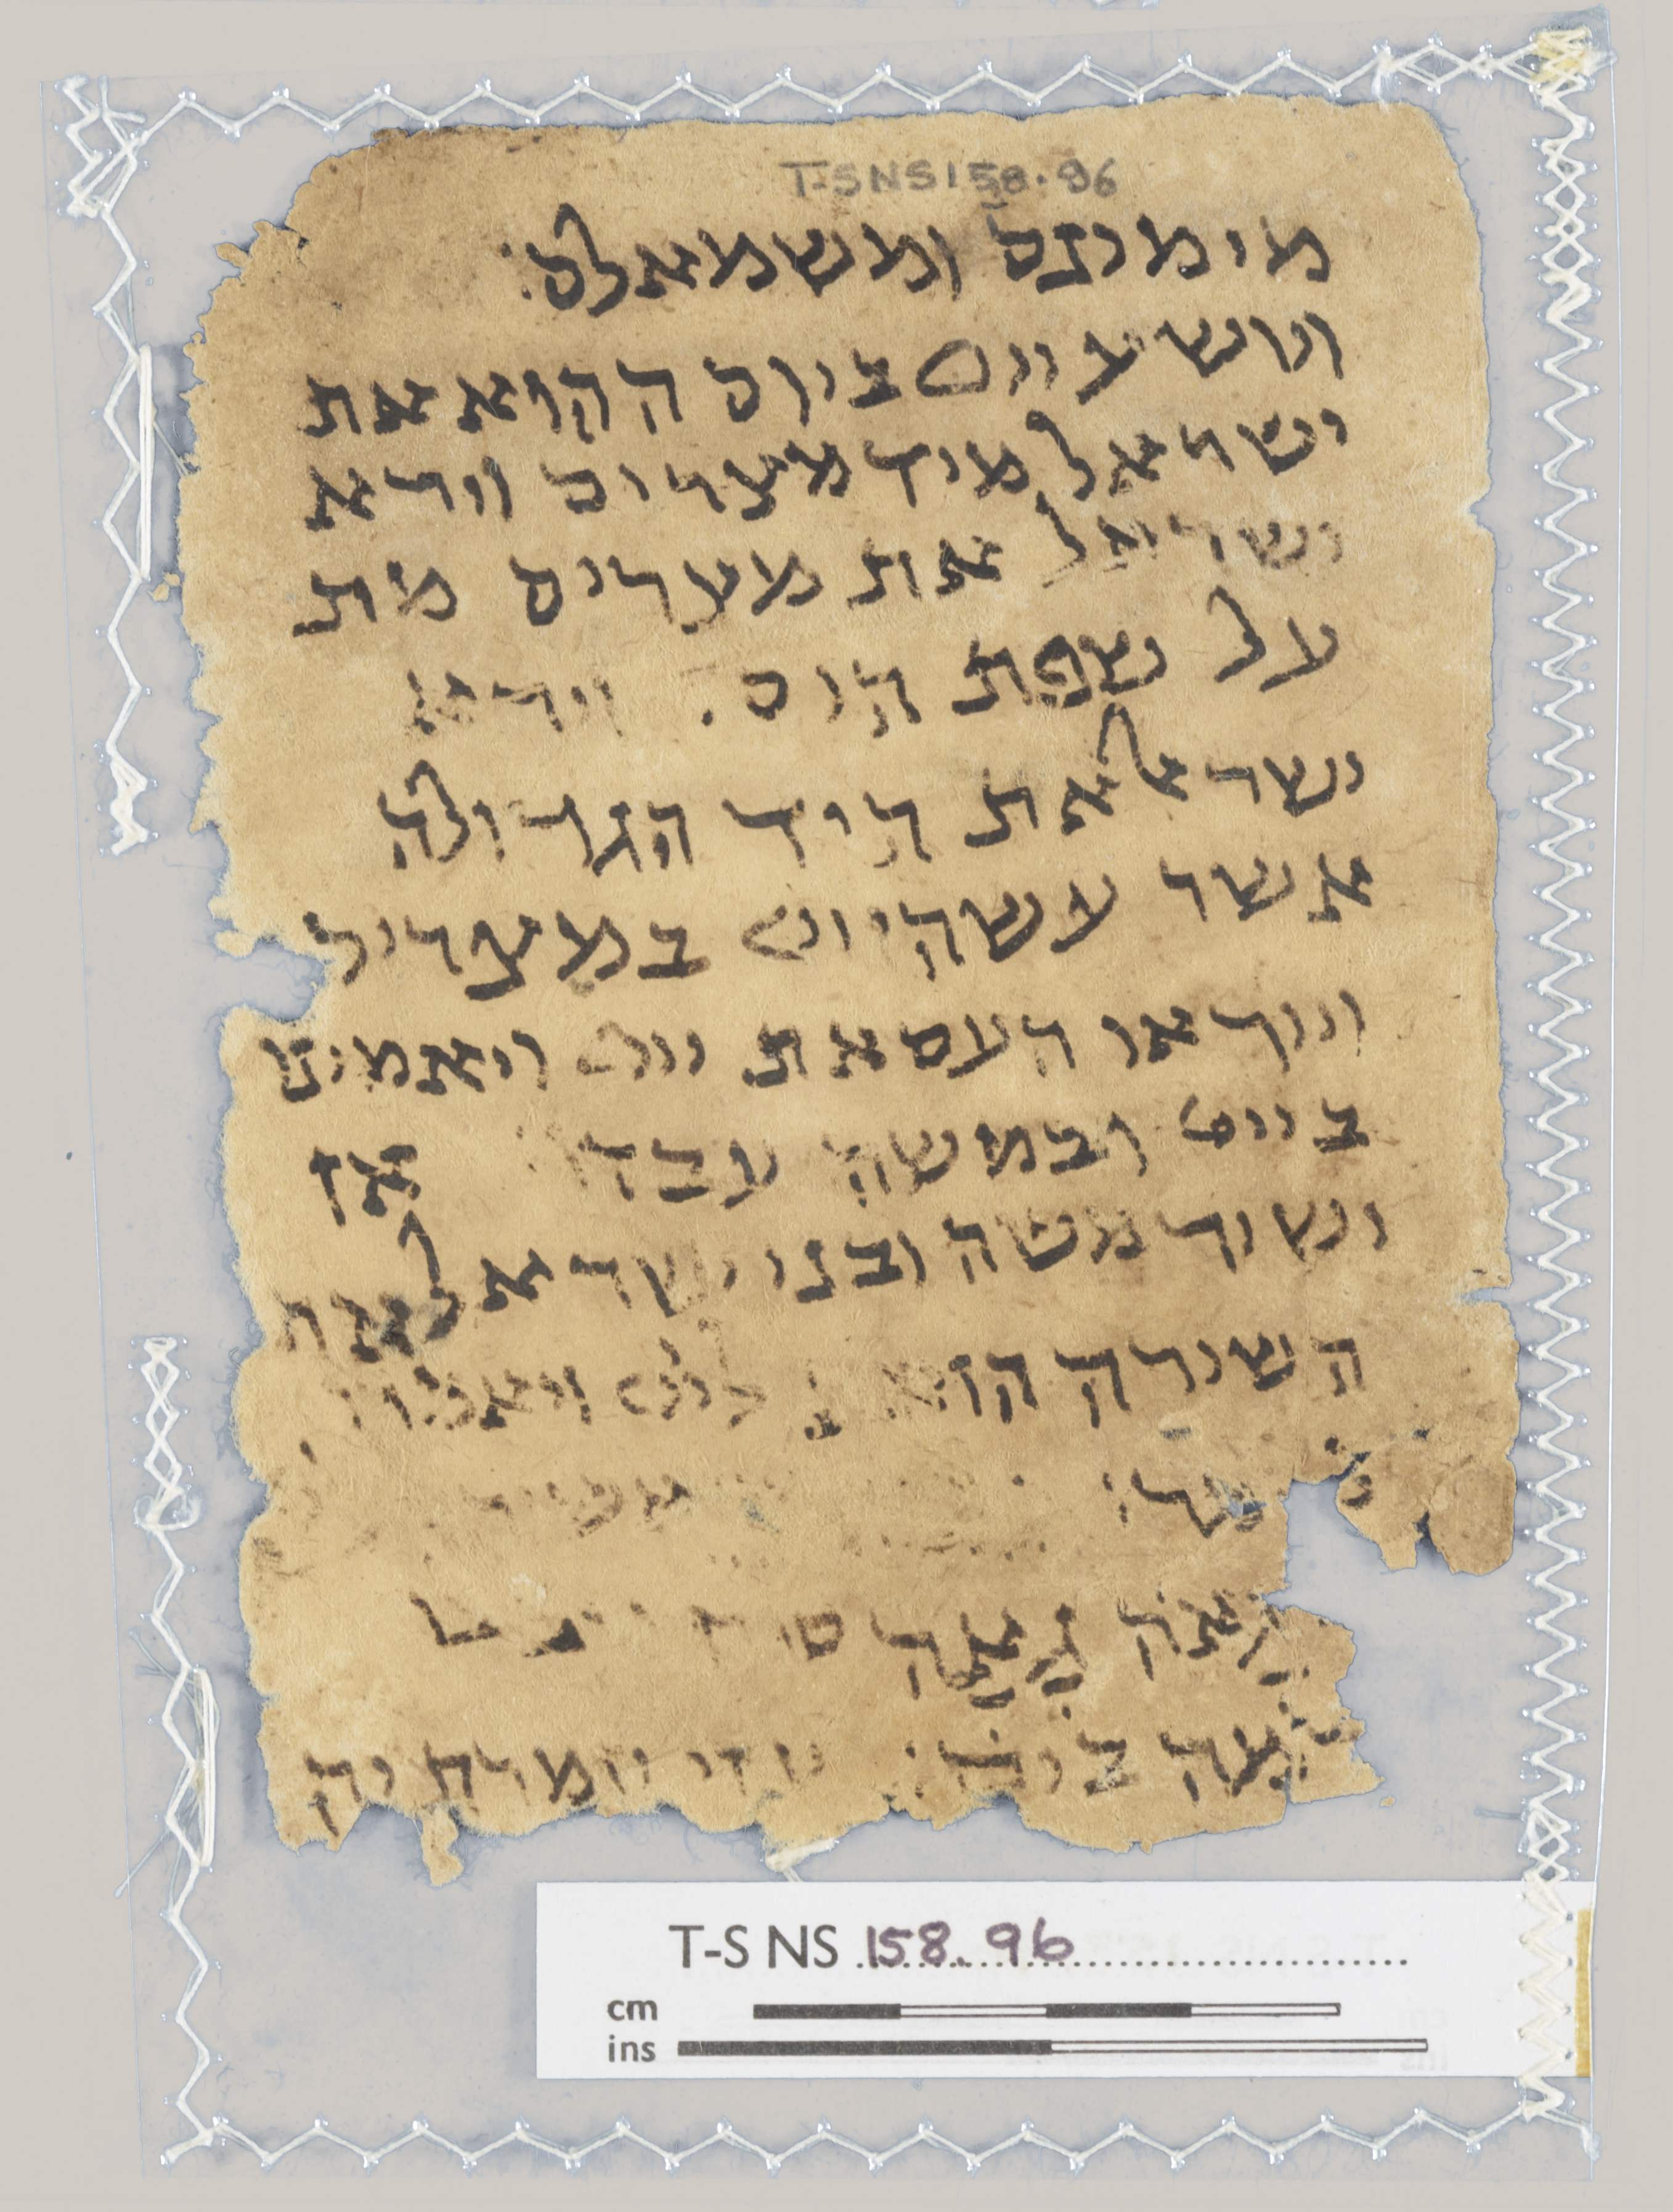 T-S NS 158.96
מימינם ומשמאלם:
ויושע ייי ביום ההוא את
ישראל מיד מצרים וירא
ישראל את מצרים מת
על שפת הים. וירא
ישראל את היד הגדולה
אשר עשה ייי במצרים
וייראו העם את ייי ויאמינו
בייי ובמשה עבדו: אז
ישיר משה ובני ישראל את
השירה הזאת לייי ויאמרו
גאה גאה סוס
רמה בים: עזי וזמרת יה
T-S NS 158.96
cm
ins